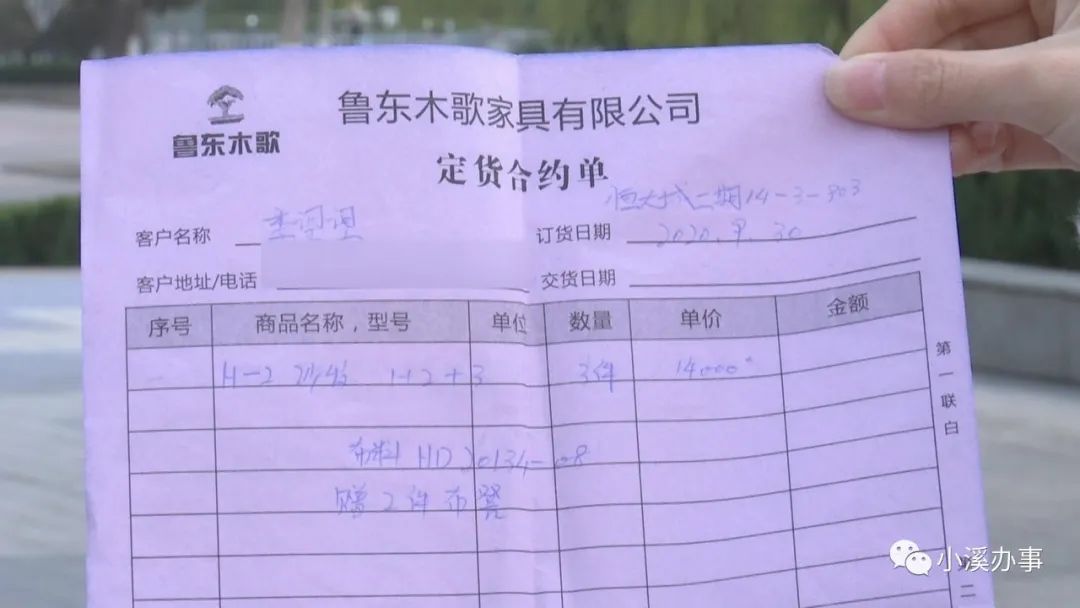 鲁东木歌
鲁东木歌家具有限公司
定货合约单
恒大城二期14-3-303
客户名称
订货日期 2020.9.30
客户地址/电话
交货日期
序号 商品名称，型号 单位 数量 单价 金额
H-2 沙发 1+2+3 3件 14000
布料 HD 20134-08
赠2件布凳
第一联白
二
小溪办事